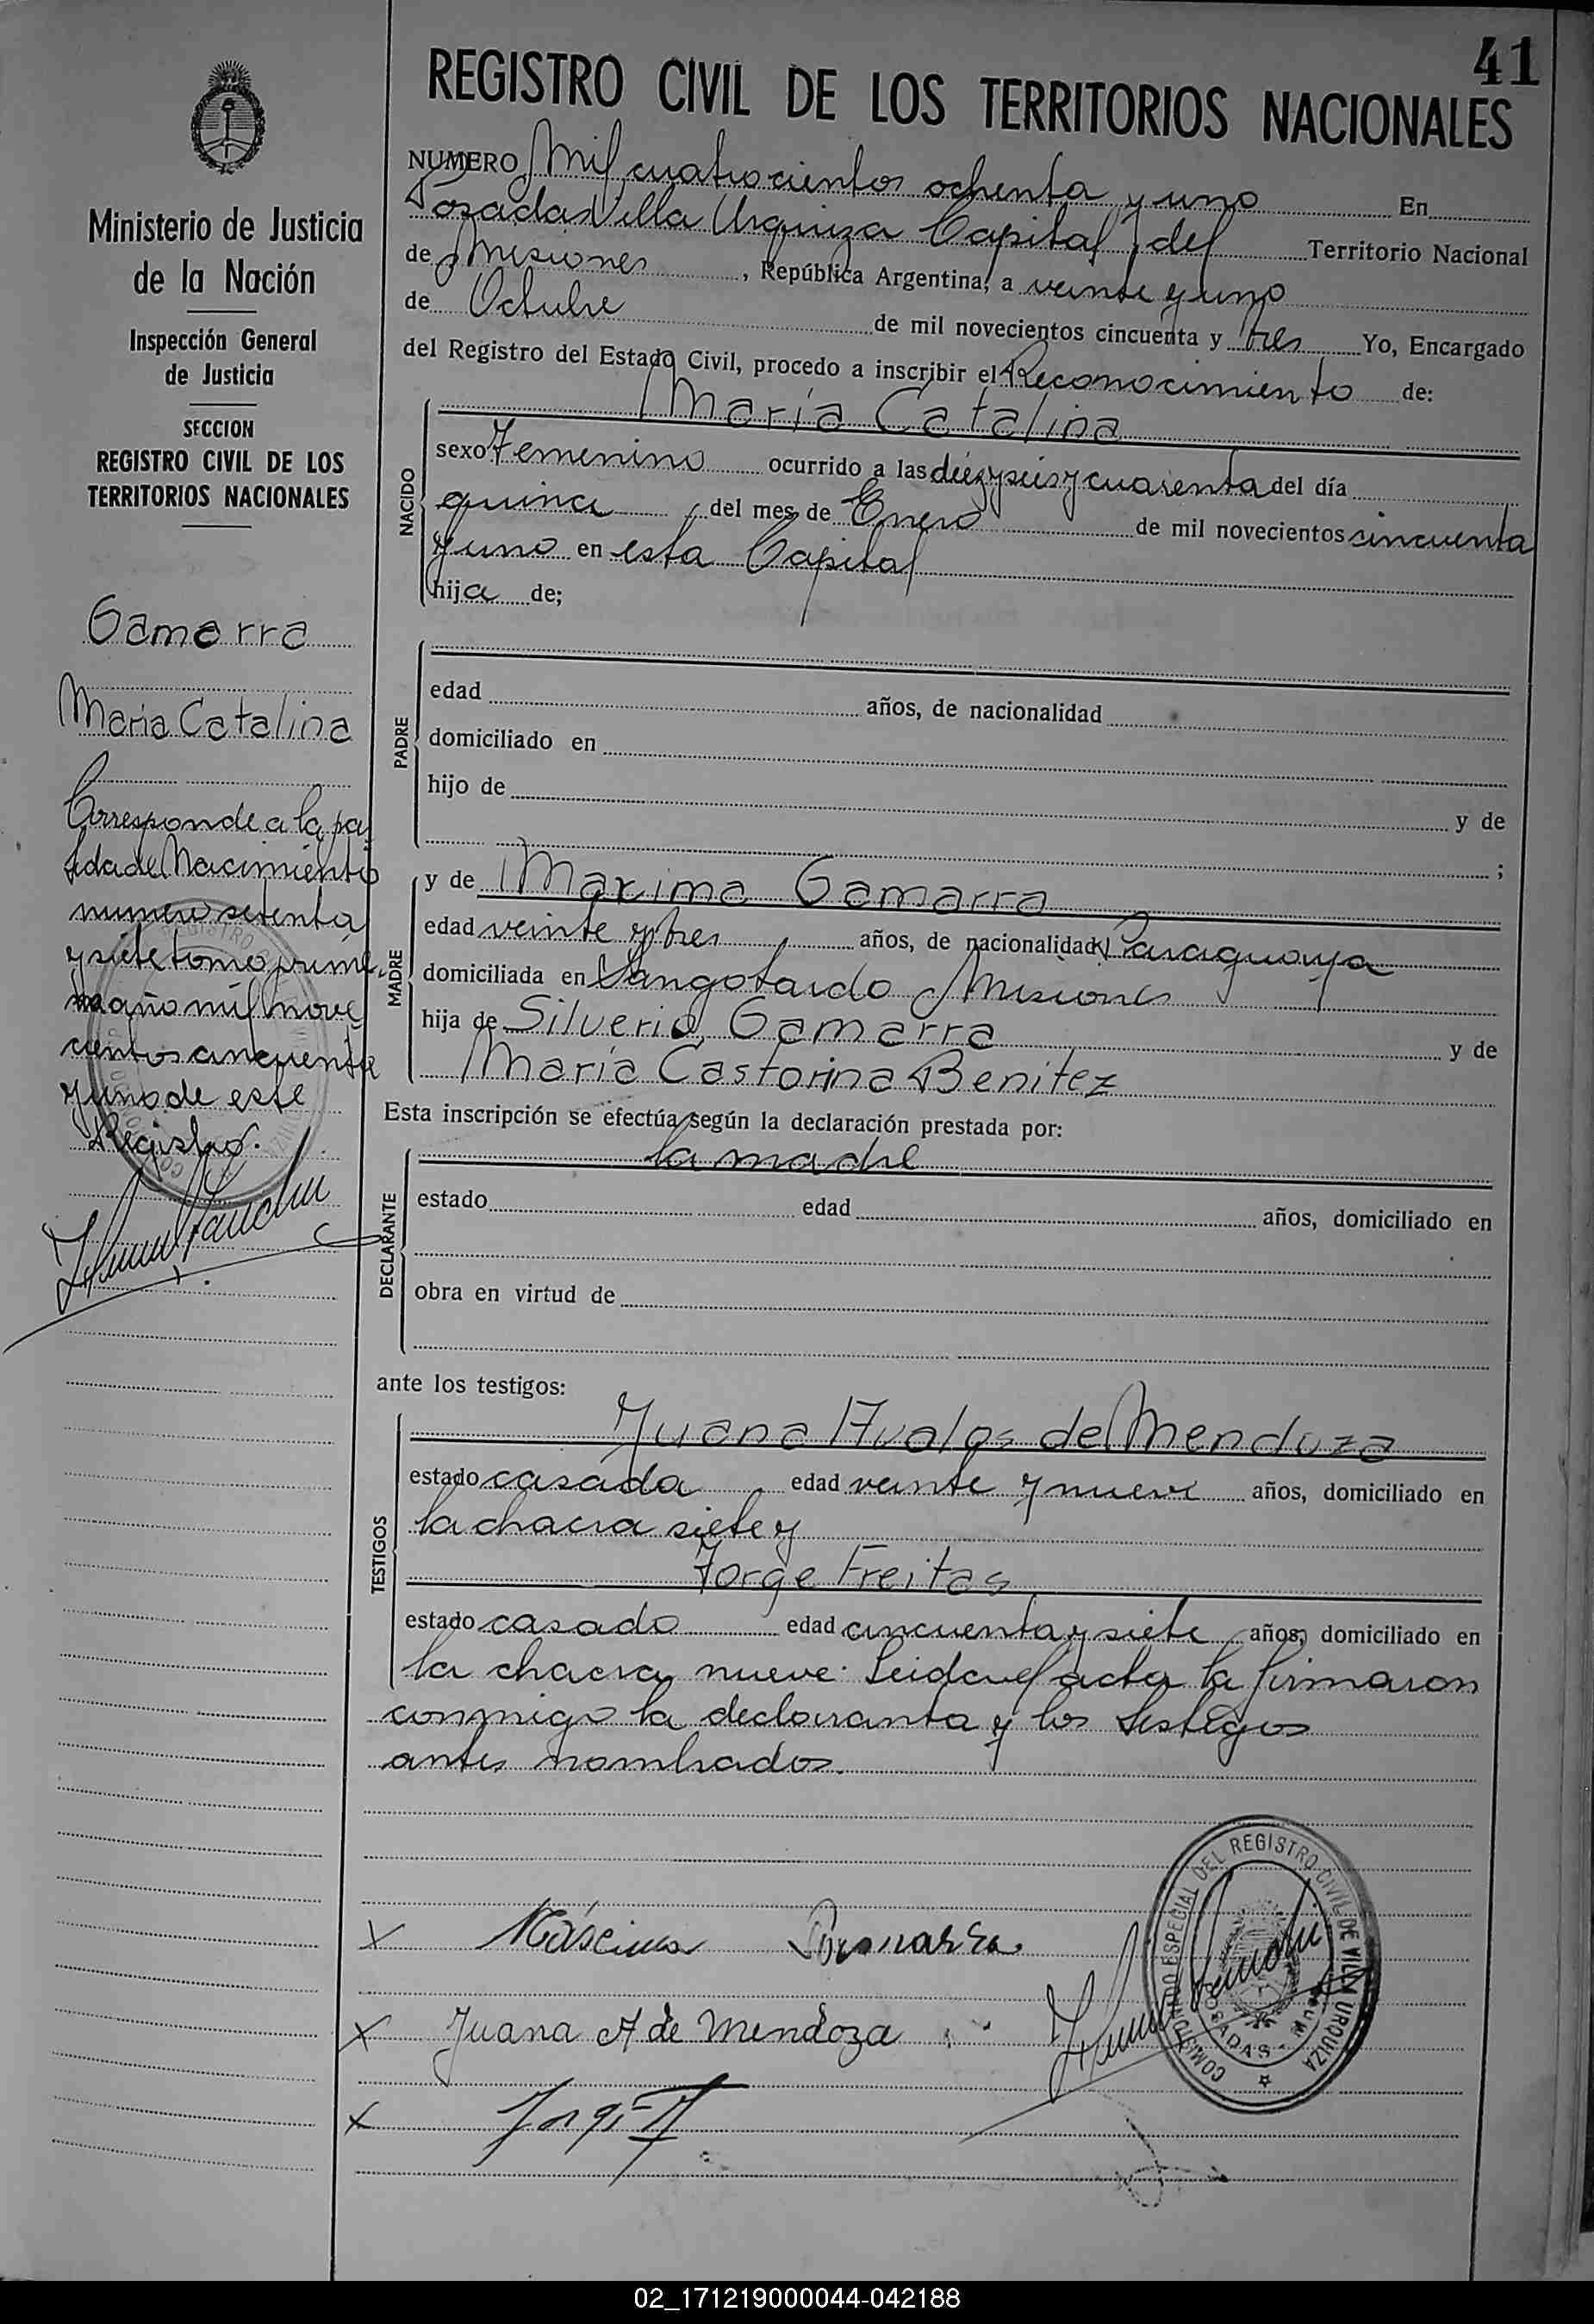 41
REGISTRO CIVIL DE LOS TERRITORIOS NACIONALES
Ministerio de Justicia
de la Nación
Inspección General
de Justicia
SECCION
REGISTRO CIVIL DE LOS
TERRITORIOS NACIONALES
Gamarra
Maria Catalina
Corresponde a la par
tida de Nacimiento
numero setenta
y siete tomo prime
ro año mil nove
cientos cincuenta
y uno de este
Registro.
NUMERO Mil cuatrocientos ochenta y uno En
Posadas Villa Urquiza Capital del Territorio Nacional
de Misiones, República Argentina, a veinte y uno
de Octubre de mil novecientos cincuenta y tres Yo, Encargado
del Registro del Estado Civil, procedo a inscribir el Reconocimiento de:
NACIDO
María Catalina
sexo Femenino ocurrido a las diez y seis y cuarenta del día
quince del mes de Enero de mil novecientos cincuenta
y uno en esta Capital
hija de;
PADRE
edad años, de nacionalidad
domiciliado en
hijo de y de
;
MADRE
y de Maxima Gamarra
edad veinte y tres años, de nacionalidad Paraguaya
domiciliada en Sangotardo Misiones
hija de Silverio Gamarra y de
María Castorina Benitez
Esta inscripción se efectúa según la declaración prestada por:
DECLARANTE
la madre
estado edad años, domiciliado en
obra en virtud de
ante los testigos:
TESTIGOS
Juana Avalos de Mendoza
estado casada edad veinte y nueve años, domiciliado en
la chacra siete y
Jorge Freitas
estado casado edad cincuenta y siete años, domiciliado en
la chacra nueve. Leida el acta la firmaron
conmigo la declaranta y los testigos
antes nombrados.
X Máscima Gamarra
X Juana A de Mendoza
X Jorge F
COMISIONADO ESPECIAL DEL REGISTRO CIVIL DE VILLA URQUIZA
POSADAS - Mnes
02_171219000044-042188